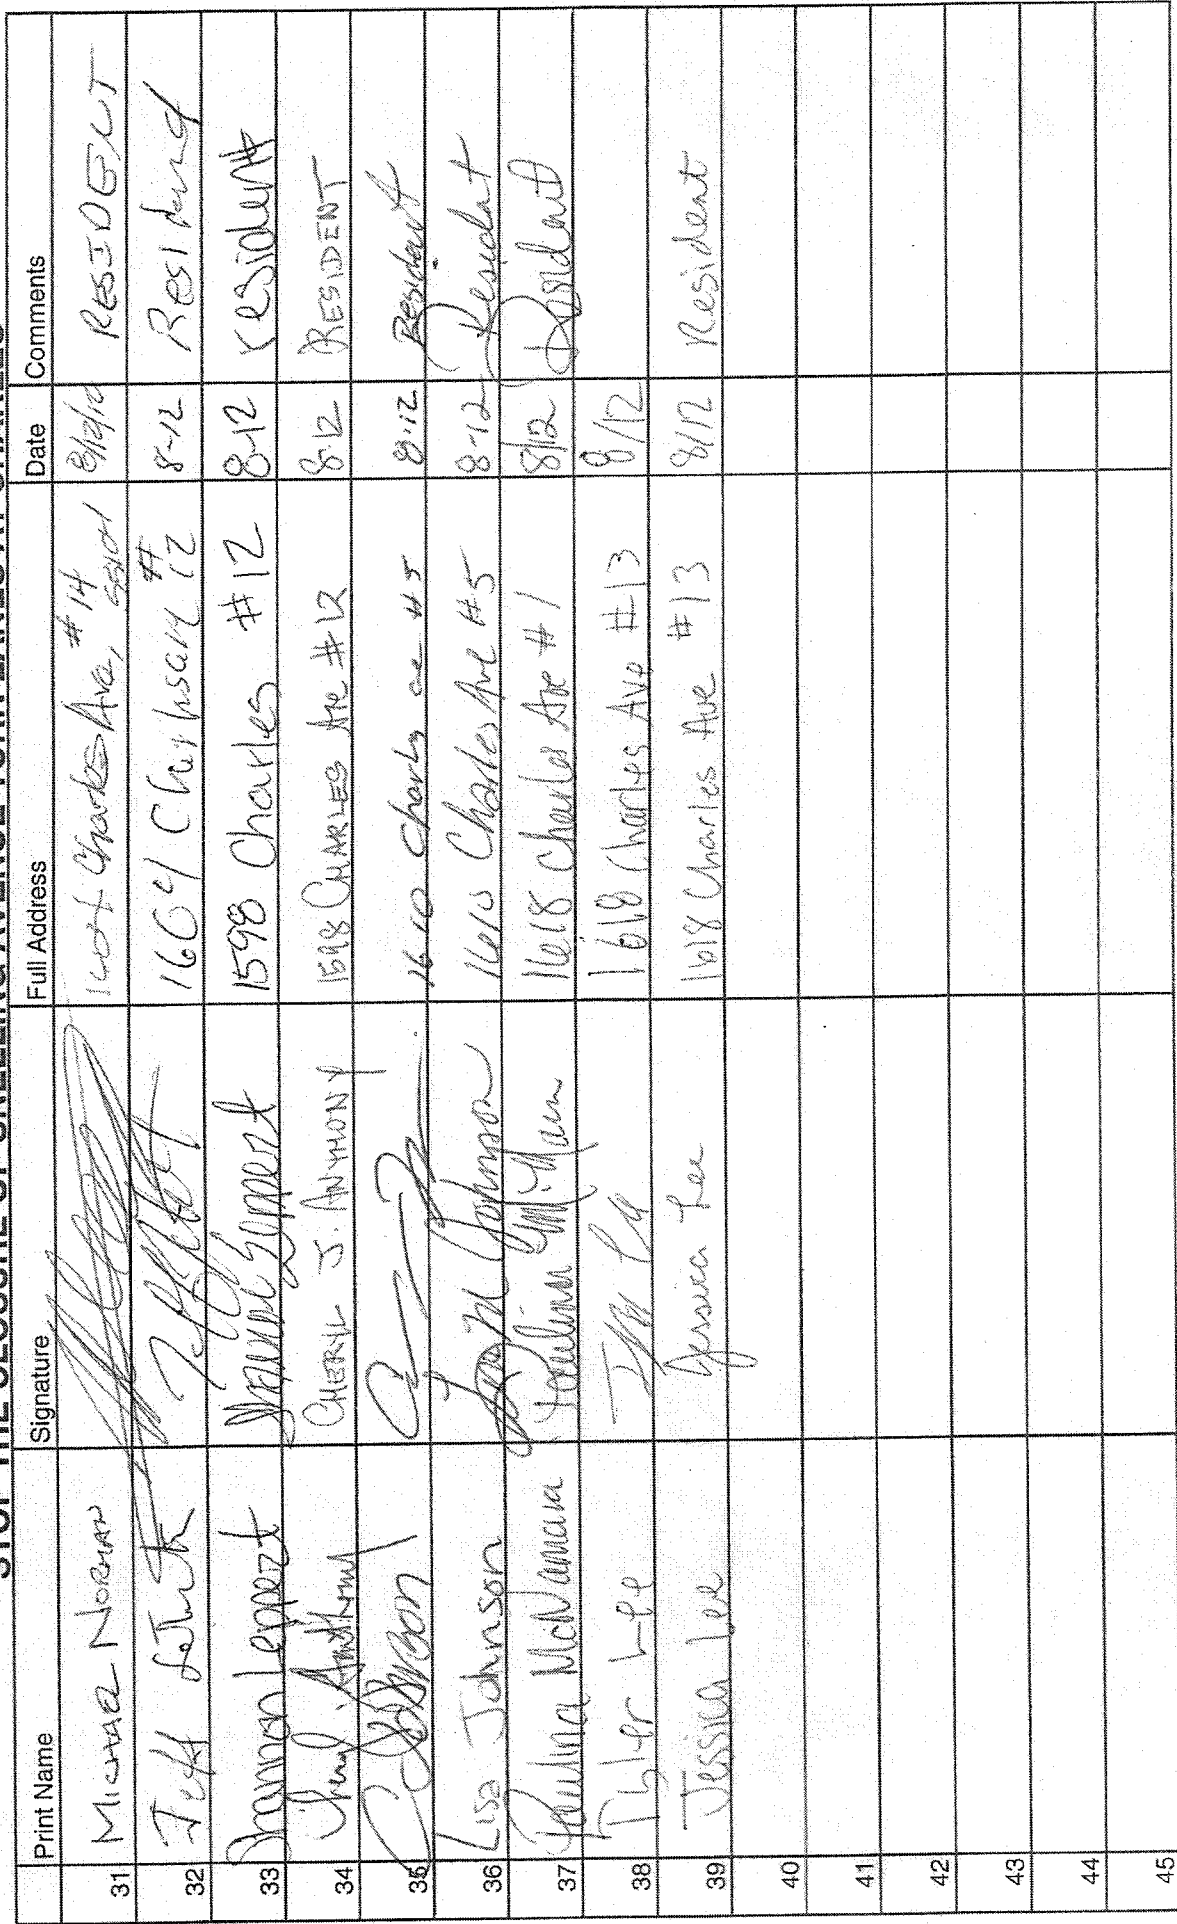 Print Name Signature Full Address Date Comments
31 MICHAEL NORMAN Charles Ave, #14 RESIDENT
32 Jeff 1604 #12 8-12 Resident
33 Shannon Leppert Shannon Leppert 1598 Charles #12 8-12 resident
34 Cheryl Anthony CHERYL J. ANTHONY 1598 CHARLES Ave #12 8-12 RESIDENT
35 1610 Charles ave #5 8-12 Resident
36 Lisa Johnson Lisa M Johnson 1610 Charles Ave #5 8-12 Resident
37 Paulina McNamara Paulina 1618 Charles Ave #1 8/12 Resident
38 Tyler Lee 1618 Charles Ave #13 8/12
39 Jessica Lee Jessica Lee 1618 Charles Ave #13 8/12 Resident
40
41
42
43
44
45